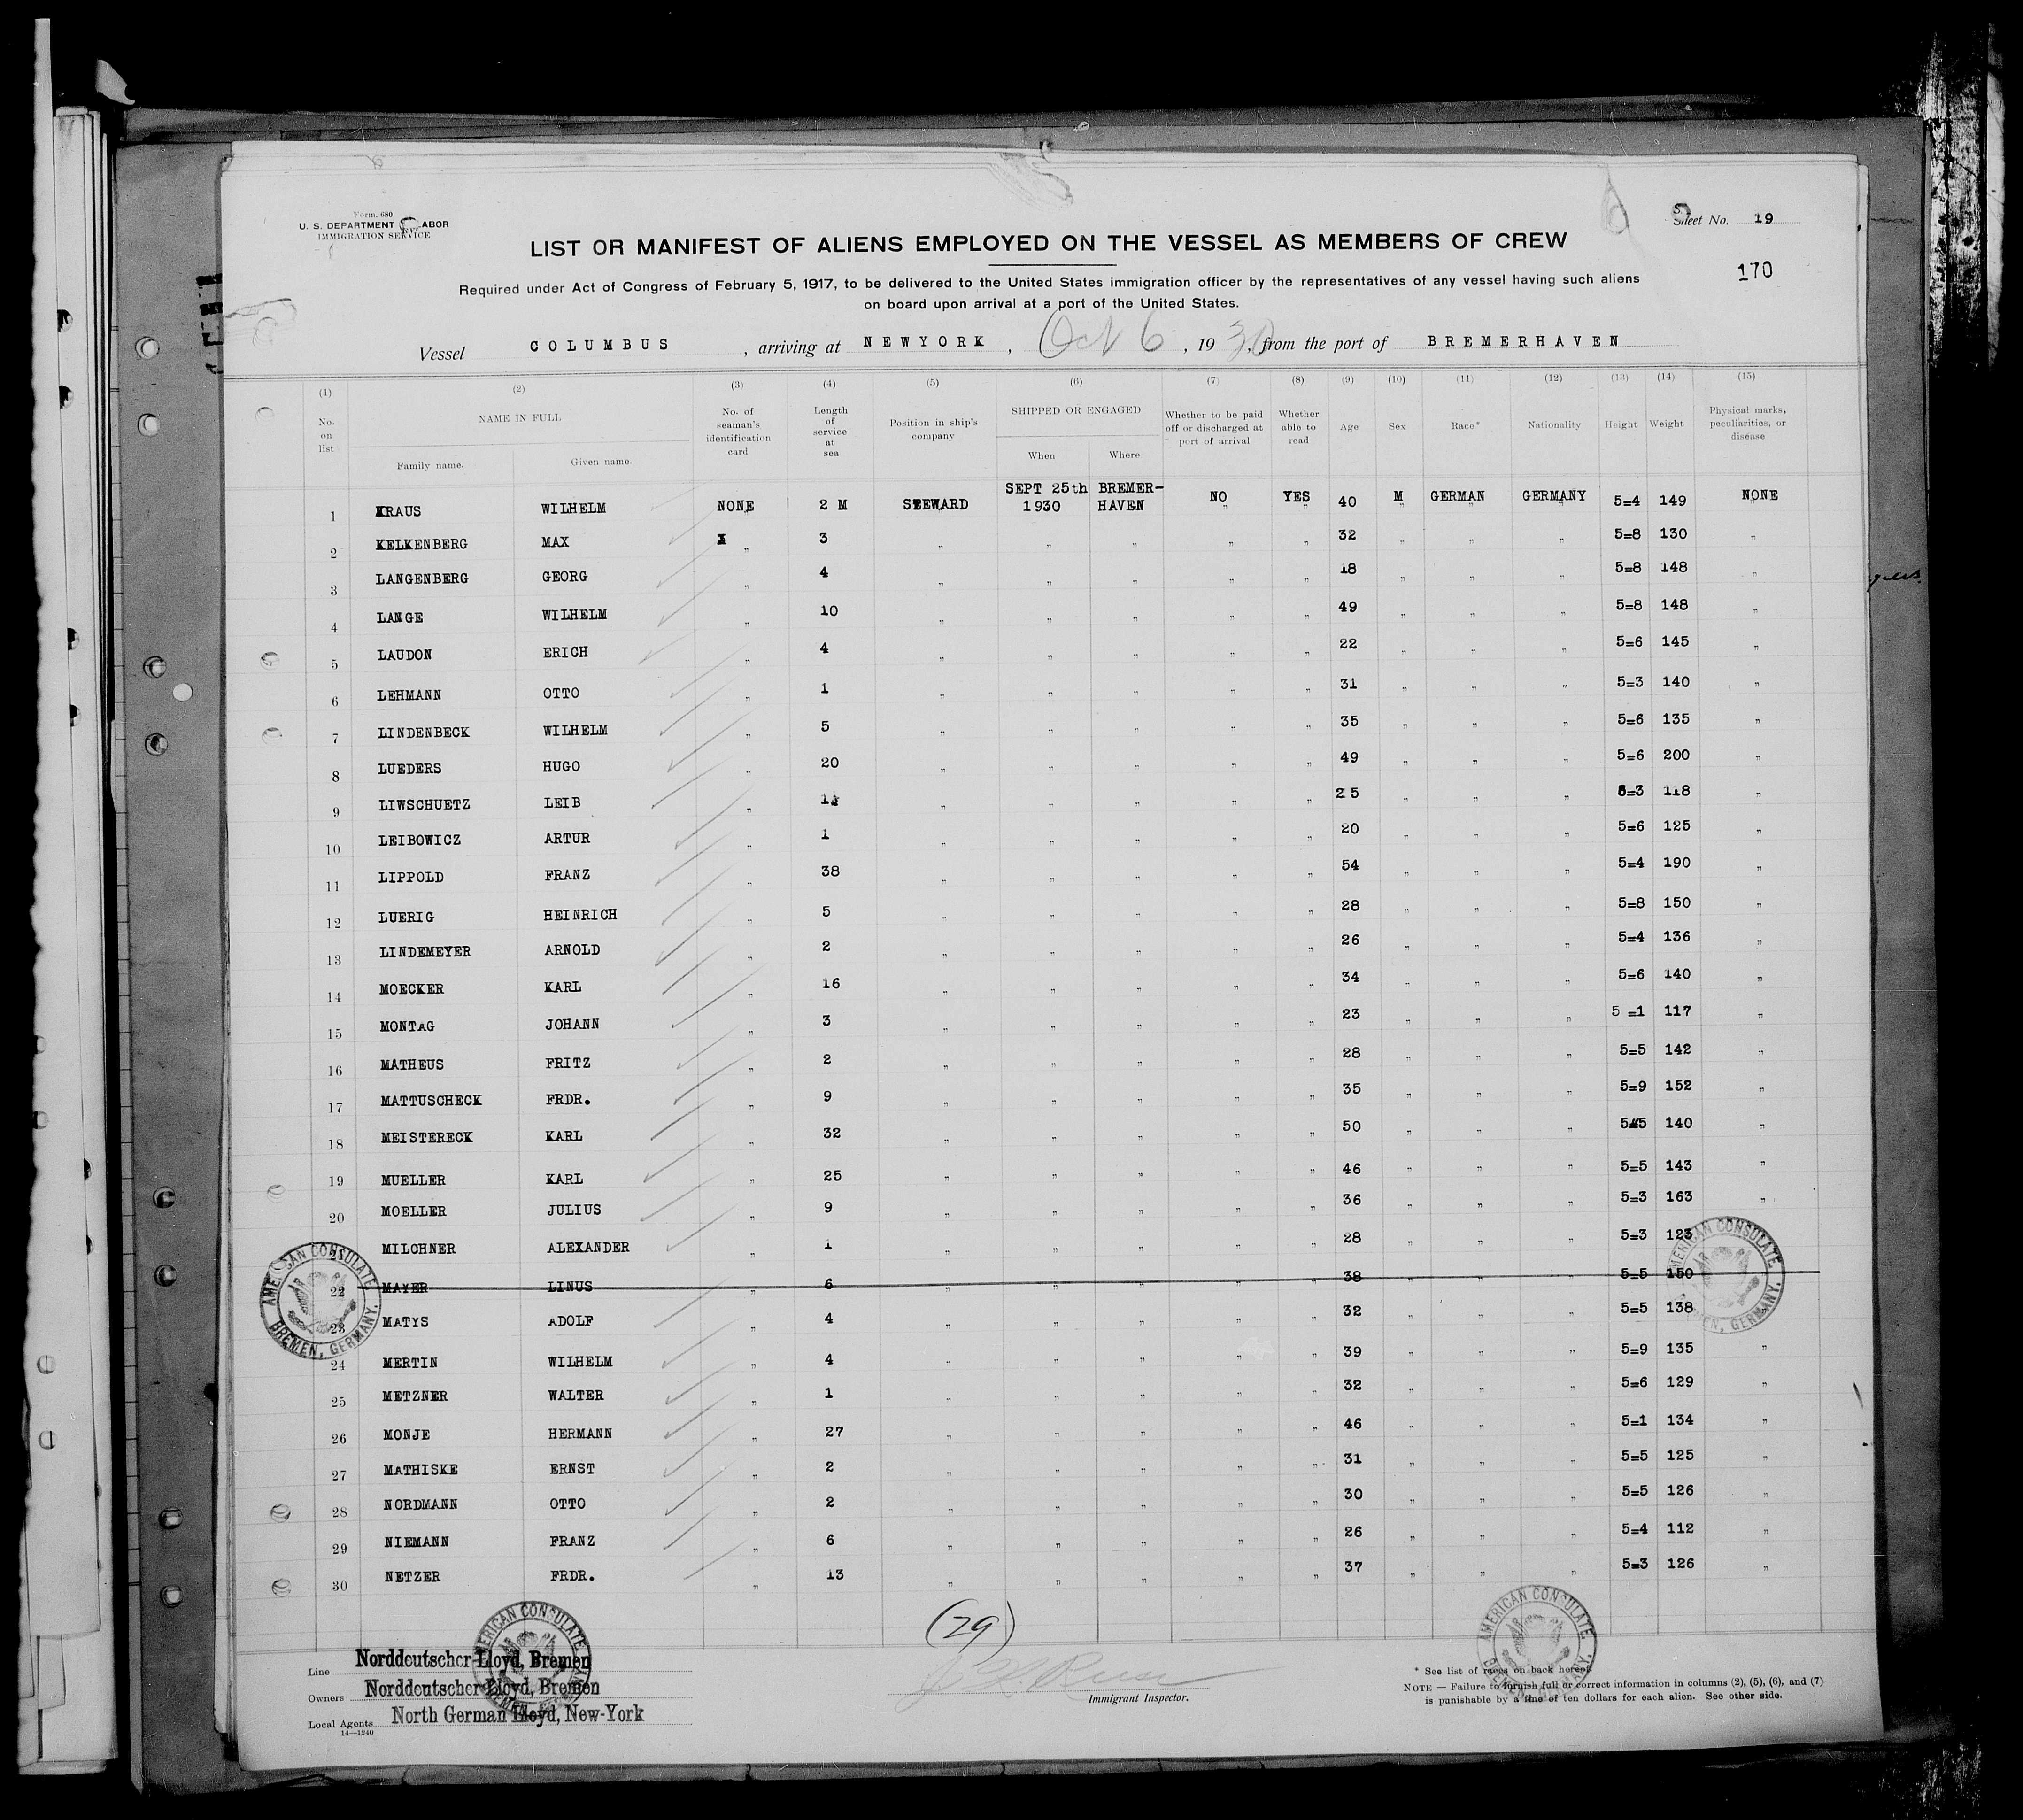 Form. 680
U. S. DEPARTMENT LABOR
IMMIGRATION SERVICE
Sheet No. 19
LIST OR MANIFEST OF ALIENS EMPLOYED ON THE VESSEL AS MEMBERS OF CREW
170
Required under Act of Congress of February 5, 1917, to be delivered to the United States immigration officer by the representatives of any vessel having such aliens
on board upon arrival at a port of the United States.
Vessel COLUMBUS , arriving at NEWYORK , Oct 6 , 1930, from the port of BREMERHAVEN
(1) (2) (3) (4) (5) (6) (7) (8) (9) (10) (11) (12) (13) (14) (15)
No. on list NAME IN FULL Family name. Given name. No. of seaman's identification card Length of service at sea Position in ship's company SHIPPED OR ENGAGED When Where Whether to be paid off or discharged at port of arrival Whether able to read Age Sex Race* Nationality Height Weight Physical marks, peculiarities, or disease
1 KRAUS WILHELM NONE 2 M STEWARD SEPT 25th 1930 BREMER-HAVEN NO YES 40 M GERMAN GERMANY 5=4 149 NONE
2 KELKENBERG MAX " 3 " " " " " 32 " " " 5=8 130 "
3 LANGENBERG GEORG " 4 " " " " " 18 " " " 5=8 148 "
4 LANGE WILHELM " 10 " " " " " 49 " " " 5=8 148 "
5 LAUDON ERICH " 4 " " " " " 22 " " " 5=6 145 "
6 LEHMANN OTTO " 1 " " " " " 31 " " " 5=3 140 "
7 LINDENBECK WILHELM " 5 " " " " " 35 " " " 5=6 135 "
8 LUEDERS HUGO " 20 " " " " " 49 " " " 5=6 200 "
9 LIWSCHUETZ LEIB " " " " " " 25 " " " 5=3 118 "
10 LEIBOWICZ ARTUR " 1 " " " " " 20 " " " 5=6 125 "
11 LIPPOLD FRANZ " 38 " " " " " 54 " " " 5=4 190 "
12 LUERIG HEINRICH " 5 " " " " " 28 " " " 5=8 150 "
13 LINDEMEYER ARNOLD " 2 " " " " " 26 " " " 5=4 136 "
14 MOECKER KARL " 16 " " " " " 34 " " " 5=6 140 "
15 MONTAG JOHANN " 3 " " " " " 23 " " " 5 =1 117 "
16 MATHEUS FRITZ " 2 " " " " " 28 " " " 5=5 142 "
17 MATTUSCHECK FRDR. " 9 " " " " " 35 " " " 5=9 152 "
18 MEISTERECK KARL " 32 " " " " " 50 " " " 5=5 140 "
19 MUELLER KARL " 25 " " " " " 46 " " " 5=5 143 "
20 MOELLER JULIUS " 9 " " " " " 36 " " " 5=3 163 "
21 MILCHNER ALEXANDER " 1 " " " " " 28 " " " 5=3 123
22 MAYER LINUS " 6 " " " " " 38 " " " 5=5 150
23 MATYS ADOLF " 4 " " " " " 32 " " " 5=5 138
24 MERTIN WILHELM " 4 " " " " " 39 " " " 5=9 135 "
25 METZNER WALTER " 1 " " " " " 32 " " " 5=6 129 "
26 MONJE HERMANN " 27 " " " " " 46 " " " 5=1 134 "
27 MATHISKE ERNST " 2 " " " " " 31 " " " 5=5 125 "
28 NORDMANN OTTO " 2 " " " " " 30 " " " 5=5 126 "
29 NIEMANN FRANZ " 6 " " " " " 26 " " " 5=4 112 "
30 NETZER FRDR. " 13 " " " " " 37 " " " 5=3 126 "
AMERICAN CONSULATE BREMEN, GERMANY.
AMERICAN CONSULATE BREMEN, GERMANY.
AMERICAN CONSULATE
AMERICAN CONSULATE BREMEN, GERMANY.
(29)
Line Norddeutscher Lloyd, Bremen
Owners Norddeutscher Lloyd, Bremen
Local Agents North German Lloyd, New-York
14—1240
Immigrant Inspector.
* See list of races on back hereof.
NOTE — Failure to furnish full or correct information in columns (2), (5), (6), and (7)
is punishable by a fine of ten dollars for each alien. See other side.